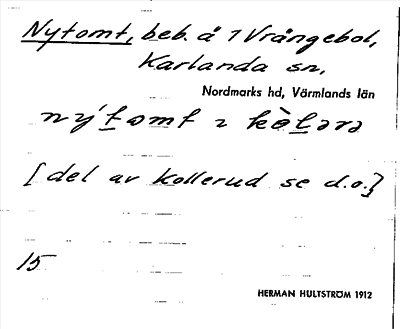 Nytomt, beb. å 1 Vrångebol,
Karlanda sn,
Nordmarks hd, Värmlands län
[del av Kollerud se d.o.]
15
HERMAN HULTSTRÖM 1912